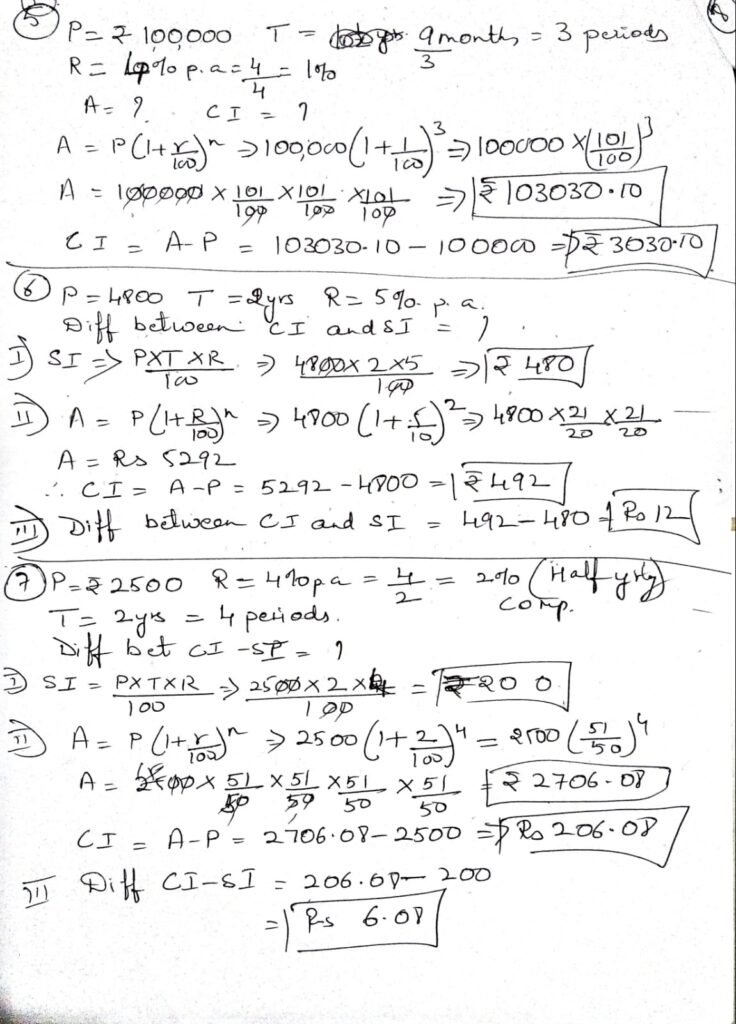 ⑤ P = ₹ 100,000 T = 9 months/3 = 3 periods
R = 4% p.a = 4/4 = 1%
A = ? CI = ?
A = P(1+r/100)^n ⇒ 100,000(1+1/100)^3 ⇒ 100000 × (101/100)^3
A = 100000 × 101/100 × 101/100 × 101/100 ⇒ ₹ 103030.10
CI = A-P = 103030.10 – 100000 ⇒ ₹ 3030.10
⑥ P = 4800 T = 2yrs R = 5% p.a.
Diff between CI and SI = ?
I) SI ⇒ PXTXR/100 ⇒ 4800x2x5/100 ⇒ ₹ 480
II) A = P(1+R/100)^n ⇒ 4800(1+5/10)^2 ⇒ 4800 × 21/20 × 21/20
A = Rs 5292
∴ CI = A-P = 5292 – 4800 = ₹ 492
III) Diff between CI and SI = 492 – 480 = Rs 12
⑦ P = ₹ 2500 R = 4% p a = 4/2 = 2% (Half yrly) comp.
T = 2yrs = 4 periods.
Diff bet CI - SI = ?
I) SI = PXTXR/100 ⇒ 2500 x 2 x 4/100 = 200
II) A = P(1+r/100)^n ⇒ 2500(1+2/100)^4 = 2500(51/50)^4
A = 2500 × 51/50 × 51/50 × 51/50 × 51/50 = ₹ 2706.08
CI = A-P = 2706.08 – 2500 ⇒ Rs 206.08
III Diff CI-SI = 206.08 – 200
= Rs 6.08